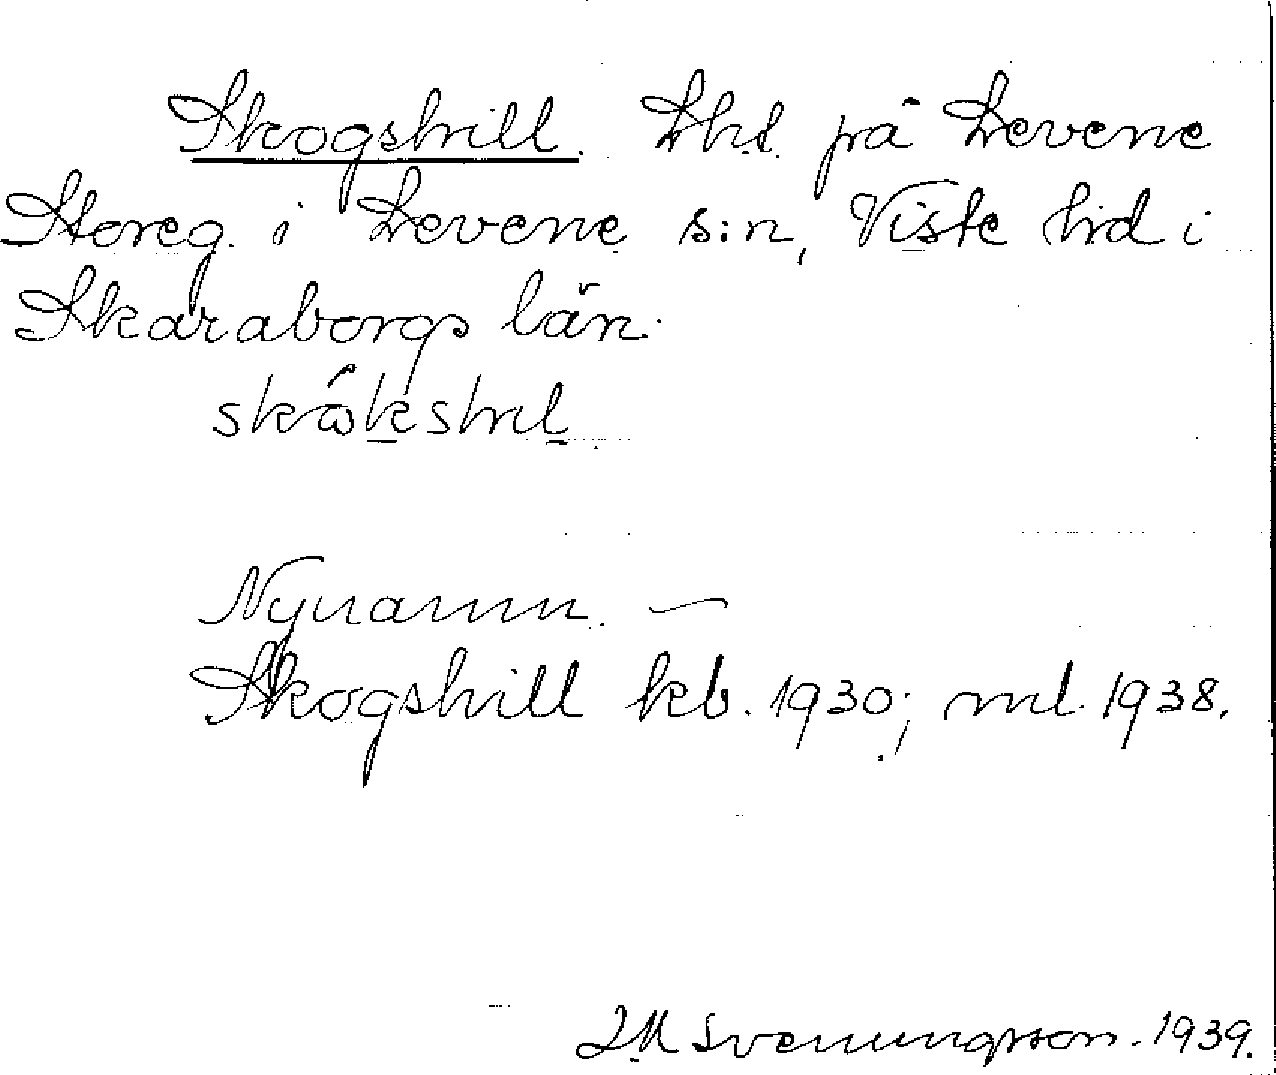 Skogshill. Lht. på Levene
Storeg. i Levene s:n, Viste hd i
Skaraborgs län.
skåkshil
Nynamn. —
Skogshill kb. 1930; ml. 1938.
Svenungsson. 1939.